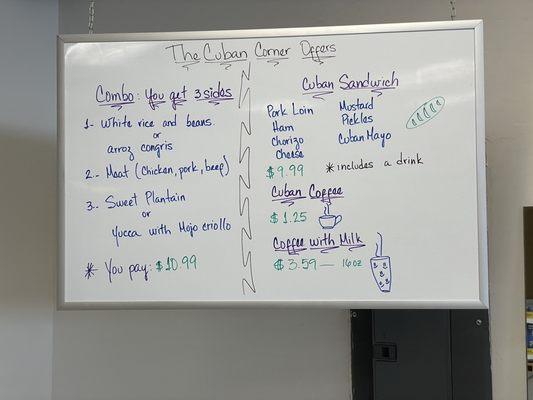 The Cuban Corner Offers
Combo: You get 3 sides
1- White rice and beans
or
arroz congris
2.- Meat (Chicken, pork, beef)
3.. Sweet Plantain
or
Yucca with Mojo criollo
* You pay: $10.99
Cuban Sandwich
Pork Loin
Ham
Chorizo
Cheese
Mustard
Pickles
Cuban Mayo
$9.99 *includes a drink
Cuban Coffee
$1.25
Coffee with Milk
$3.59 — 16oz